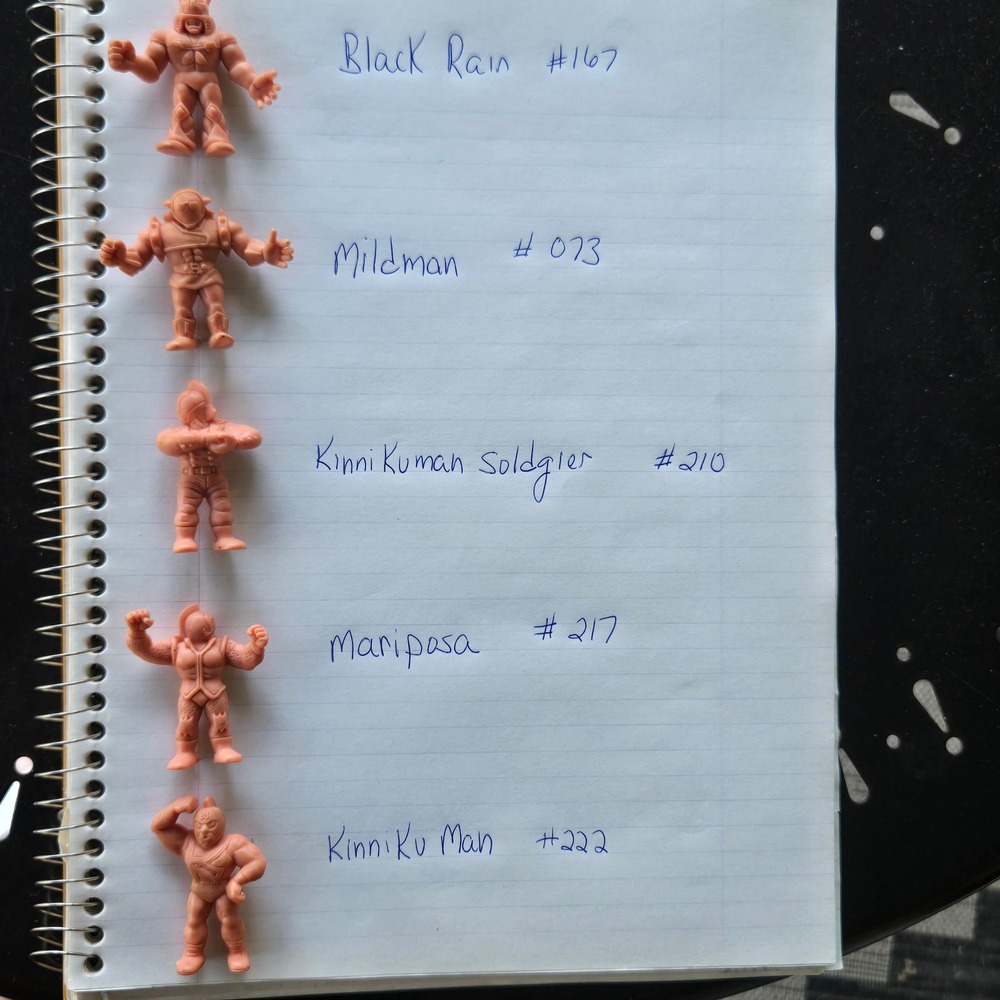 Black Rain #167
Mildman # 073
KinniKuman Soldgier #210
Mariposa # 217
KinniKu Man #222